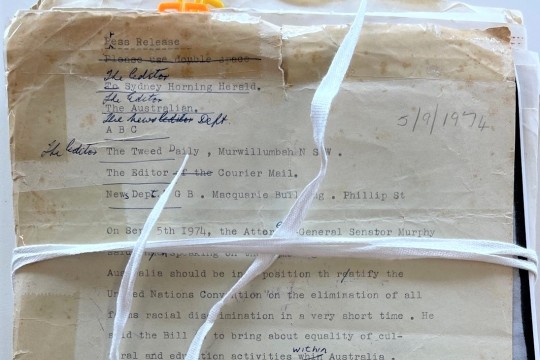 Press Release
Please use double space
The Editor
To Sydney Horning Herald.
The Editor
The Australian.
The News Editor Dept
A B C
5/9/1974
The Editor The Tweed Daily , Murwillumbah N S W .
The Editor of the Courier Mail.
News Dept G B . Macquarie Building . Phillip St
On Sep 5th 1974, the Attor General Senator Murphy
speaking on the
Australia should be in position th ratify the
United Nations Convention on the elimination of all
racial discrimination in a very short time . He
said the Bill to bring about equality of cul-
within
and activities whin Australia .